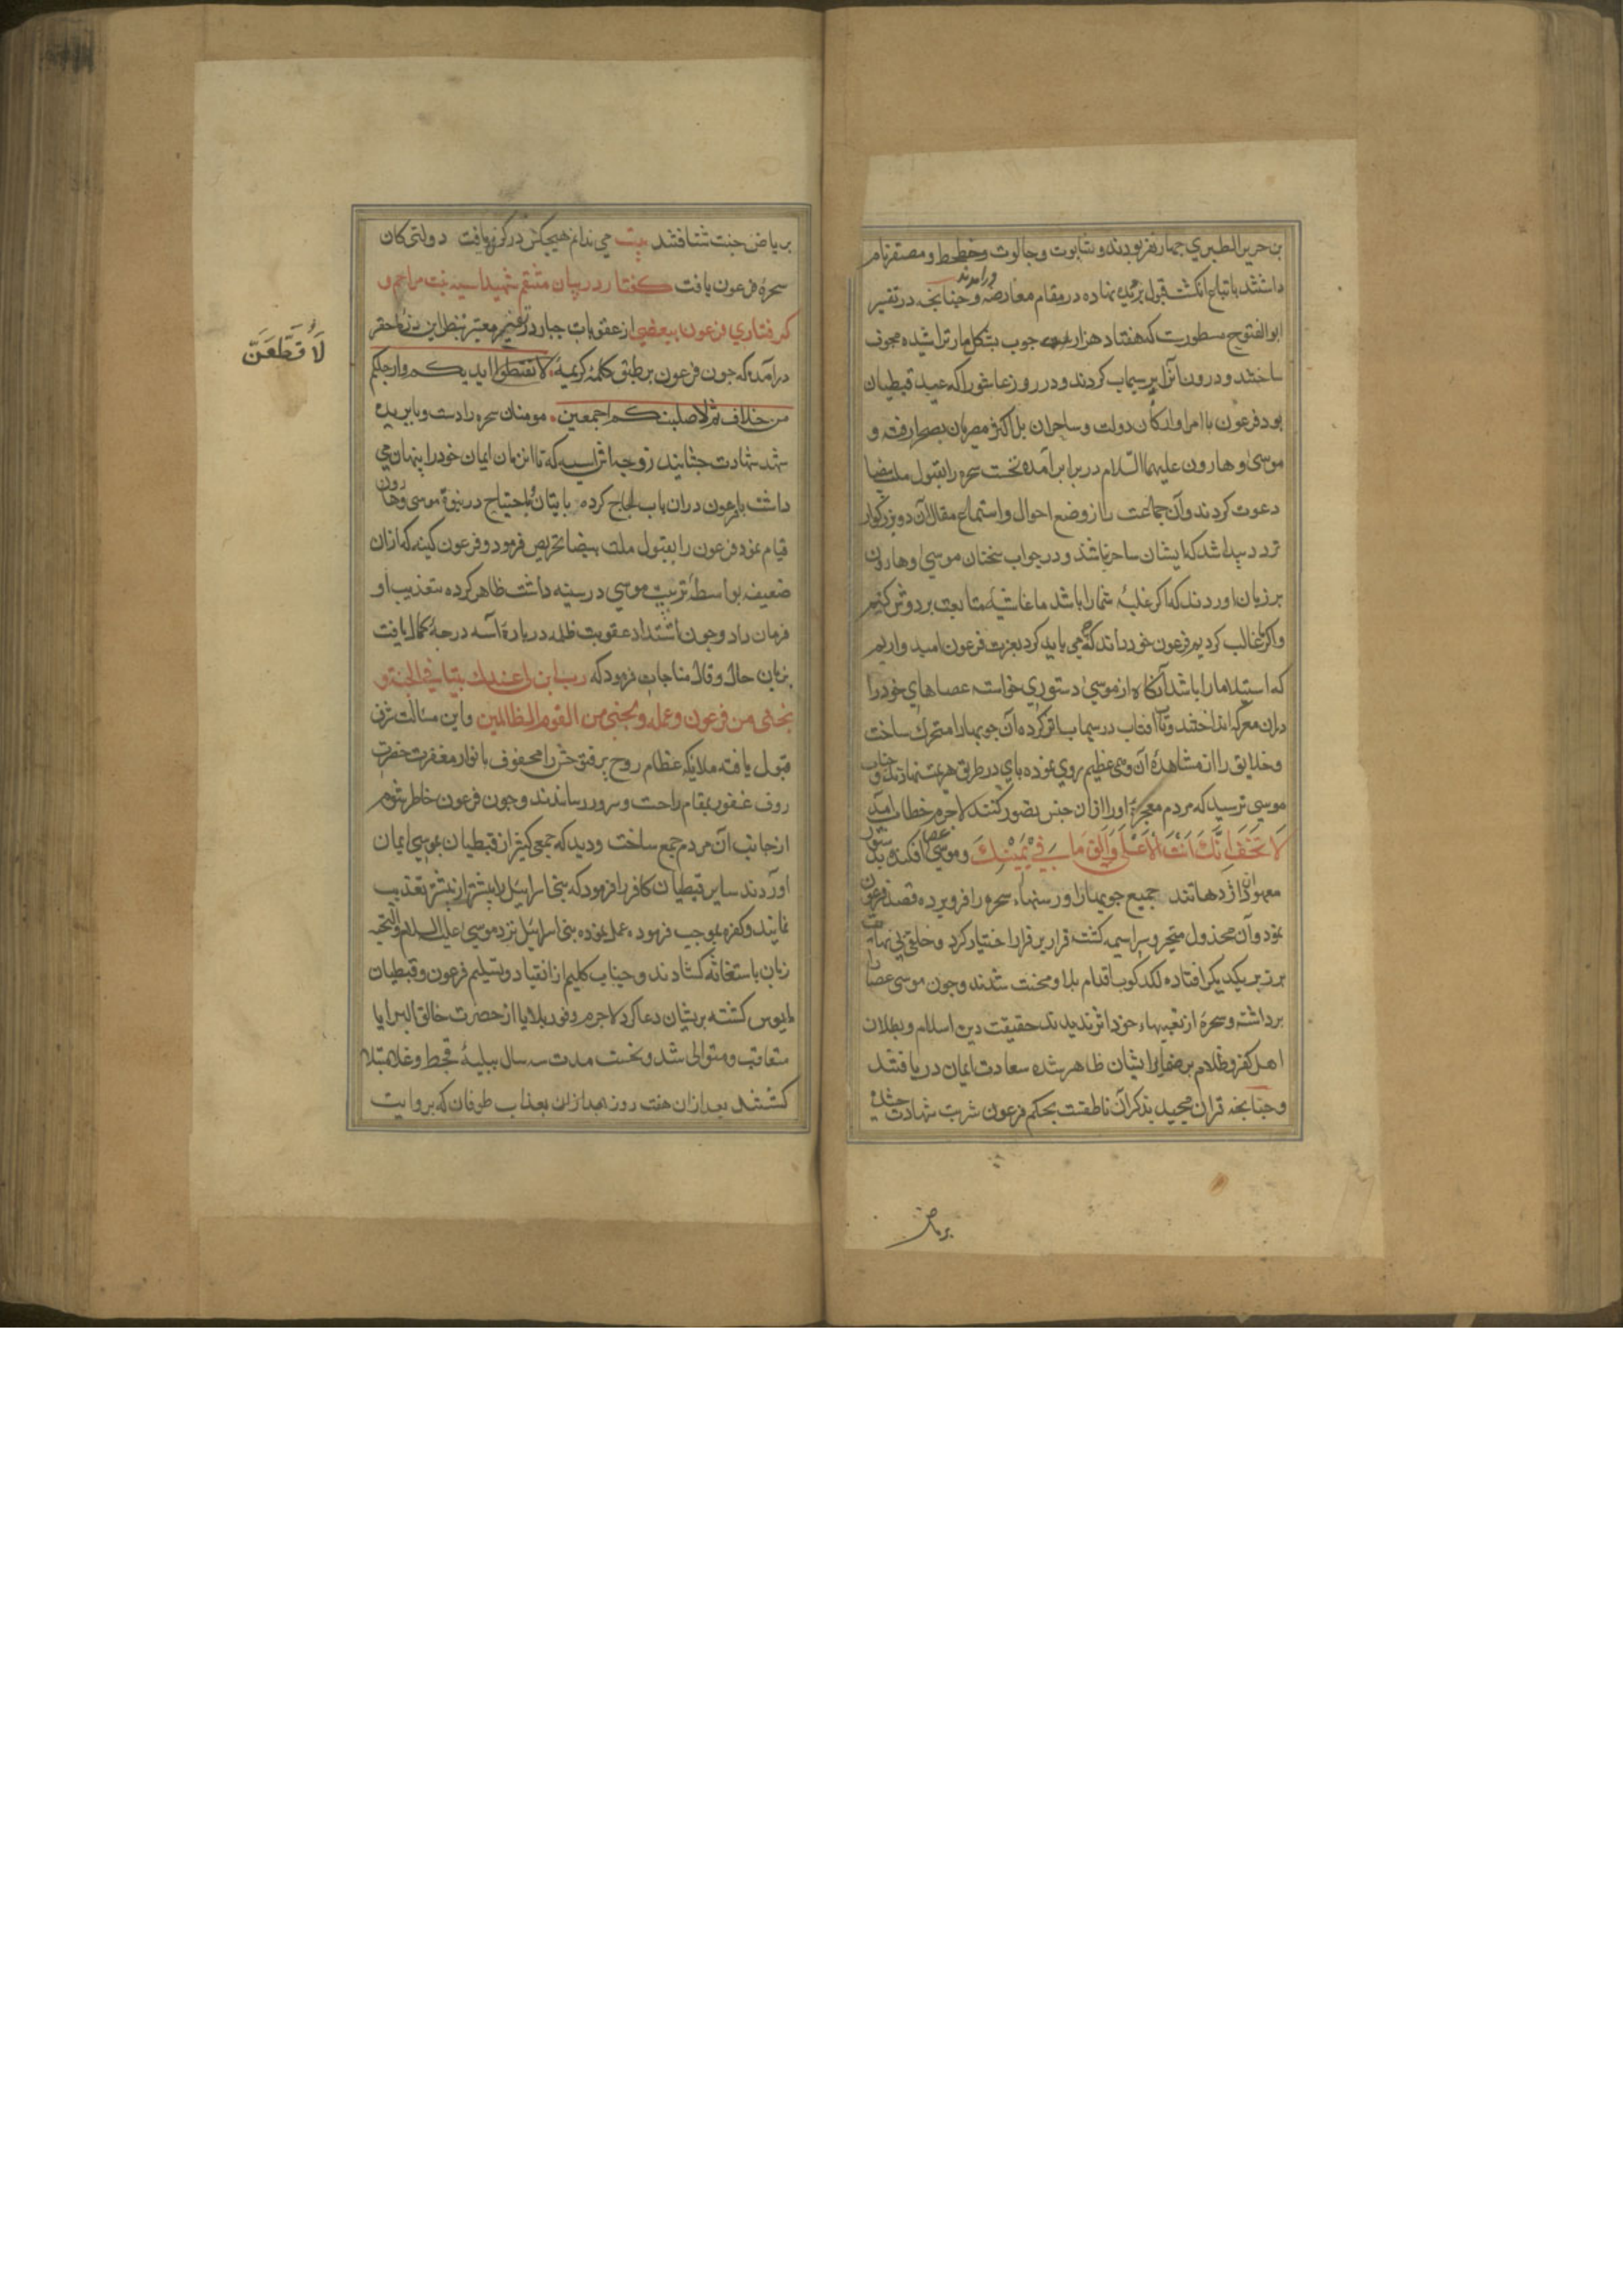 بن جرير الطبري چهار نفر بودند و شابوت و جالوت و خطحط و مصقر نام
داشتند باتباع انکشت قبول بر دیده نهاده در مقام معارضه درامدند و چنانچه در تفسیر
ابو الفتوح مسطورست که هفتاد هزار چوب بشکل مار تراشیده مجوف
ساختند و درون آنرا پر سیماب کردند و در روز عاشورا که عید قبطیان
بود فرعون با امرا و ارکان دولت و ساحران بل اکثر مصریان بصحرا رفته و
موسی و هارون علیهما السلام در برابر آمده نخست سحره را بقبول ملت بیضا
دعوت کردند و آن جماعت را از وضع احوال و استماع مقال آن دو بزرکوار
تردد پیدا شد که ایشان ساحر نباشند و در جواب سخنان موسی و هارون
بر زبان اوردند که اکر غلبه شما را باشد ما غاشیه متابعت بر دوش کنیم
و اکر ما غالب کردیم فرعون خود داند که چه می باید کرد بعزت فرعون امید واریم
که استیلا ما را باشد آنکاه از موسی دستوری خواسته عصاهای خود را
دران معرکه انداختند و تاب افتاب در سیماب اثر کرده آن چوبها را متحرک ساخت
و خلایق را از مشاهدهٔ آن وهمی عظیم روی نموده پای در طریق هزیمت نهادند و جناب
موسی ترسید که مردم معجزهٔ او را از ان جنس تصور کنند لاجرم خطاب آمد
لَا تَخَفْ اِنَّكَ اَنْتَ الْاَعْلٰى وَاَلْقِ مَا فِي يَمِيْنِكَ و موسی عصا افکند و بدستور
معهود آن اژدها شد جمیع چوبها و رسنهاء سحره را فرو برده قصد فرعون
نمود و آن مخذول متحیر و سراسیمه کشته فرار بر قرار اختیار کرد و خلقی بی نهایت
بر زبر یکدیکر افتاده لکد کوب اقدام بلا و محنت شدند و چون موسی عصا را
برداشته و سحره از تعبیهاء خود اثر ندیدند حقیقت دین اسلام و بطلان
اهل کفر و ظلام بر ضمایر ایشان ظاهر شده سعادت ایمان دریافتند
و چنانچه قران مجید بذکر آن ناطقست بحکم فرعون شربت شهادت چشیده
بریاض
بریاض جنت شتافتند بیت می ندانم هیچکس در کفر یافت دولتی کان
سحرهٔ فرعون یافت کفتار در بیان شهید اسیه بنت مزاحم و
کرفتاری فرعون ببعضی از عقوبات جبار در تفسیر معتبر بنظر این ذرهٔ احقر
درآمده که چون فرعون بر طبق کلمهٔ کریمهٔ لاقطعن ایدیکم و ارجلکم
من خلاف ثم لاصلبنکم اجمعین مومنان سحره را دست و پا بریده
شهد شهادت چشانید زوجه اش اسیه که تا ان زمان ایمان خود را پنهان می
داشت با فرعون دران باب لجاج کرده باثبات احتیاج در نبوة موسی و هارون
قیام نمود فرعون را بقبول ملت بیضا تحریص فرمود و فرعون کینه که ازان
ضعیفه بواسطهٔ تربیت موسی در سینه داشت ظاهر کرده بتعذیب او
فرمان داد و چون اشتداد عقوبت ظلمه در بارهٔ آسیه درجهٔ کمال یافت
بزبان حال و قال مناجات فرمود که رب ابن لی عندك بیتا فی الجنة و
نجنی من فرعون و عمله و نجنی من القوم الظالمین و این مسالت شرف
قبول یافته ملایکه عظام روح پر فتوحش را محفوف بانوار مغفرت حضرت
روف غفور بمقام راحت و سرور رسانیدند و چون فرعون خاطر شوم
از جانب آن مردم جمع ساخت و دید که جمعی کثیر از قبطیان بموسی ایمان
اوردند سایر قبطیان کافر را فرمود که بنی اسراییل را بیشتر از پیشتر تعذیب
نمایند و کفره بموجب فرموده عمل نموده بنی اسراییل نزد موسی علیه السلام والتحیه
زبان باستغاثه کشادند و جناب کلیم از انقیاد و تسلیم فرعون و قبطیان
مایوس کشته بریشان دعا کرد لاجرم وفور بلایا از حضرت خالق البرایا
متعاقب و متوالی شد و نخست مدت سه سال ببلیهٔ قحط و غلا مبتلا
کشتند بعد ازان هفت روز بعذاب طوفان که بروایت
لَاُقَطِّعَنَّ